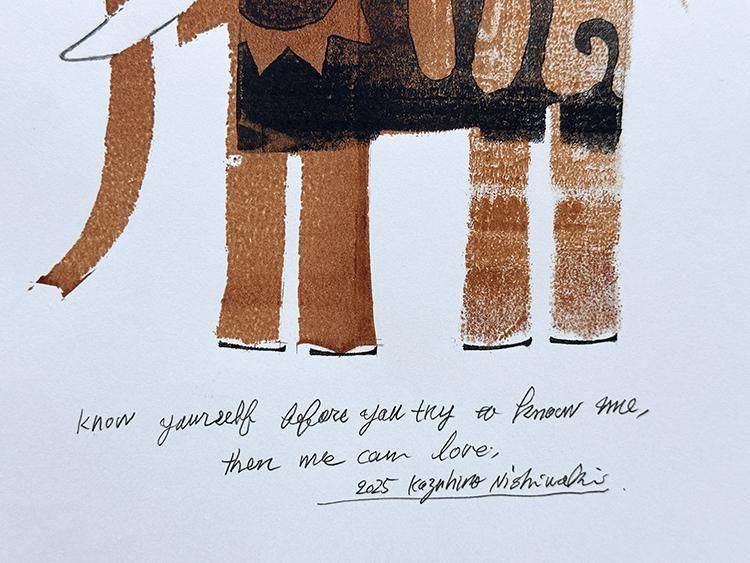 know yourself before you try to know me,
then we can love,
2025 Kazuhiro Nishiwaki.